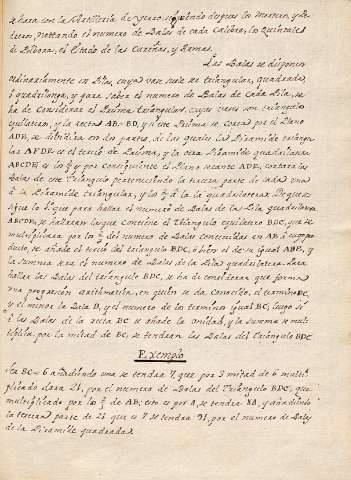 se hará con la Artilleria de yerro siguiendo despues los Morteros, y Pe-
dreros, notando el numero de Balas de cada calibre, los Quintales
de Polvora, el Estado de las Cureñas, y Ramas.
Las Balas se disponen
ordinariamente en Pilas, cuya vase suele ser triangular, quadrada,
ó quadrilonga, y para saber el numero de Balas de cada Pila, se
ha de considerar el Prisma triangular, cuyas vases son triangulos
equilateros, y la recta AB=BD, y si este Prisma se corta por el Plano
ADE, se dividirá en dos partes, de las quales la Piramide triangu-
lar AFDE es el tercio del Prisma, y la otra Piramide quadrilatera
ABCDE es los ⅔ y por consiguiente el Plano secante ADE, contara las
Balas de este Triangulo perteneciendo la tercera parte de cada una
á la Piramide triangular, y los ⅔ á la de quadrilatera: De que se
sigue lo 1º que para hallar el numero de Balas de la Pila quadrilatera
ABCDE, se hallaran las que contiene el Triangulo equilatero BDC, que se
multiplicara por los ⅔ del numero de Balas contenidas en AB á cuyo pro-
ducto, se añade el tercio del triangulo BDC, ó bien el de su igual ADE, y
la summa será el numero de Balas de la Pila quadrilatera. Para
hallar las Balas del triangulo BDC, se ha de considerar que forma
una progresion arithmetica, en quien se da conocido, el termino BC,
y el menor la Bala D, y el numero de los terminos igual BC, luego si
á las Balas de la recta BC se añade la unidad, y la summa se multi-
plica por la mitad de BC, se tendran las Balas del Triangulo BDC
Exemplo
Sea BC=6 añadiendo una se tendra 7, que por 3 mitad de 6 multi-
plicado dara 21, por el numero de Balas del Triangulo BDC, que
multiplicado por los ⅔ de AB; esto es por 4, se tendra 84, y añadiendo
la tercera parte de 21 que es 7 se tendra 91, por el numero de Balas
de la Piramide quadrada